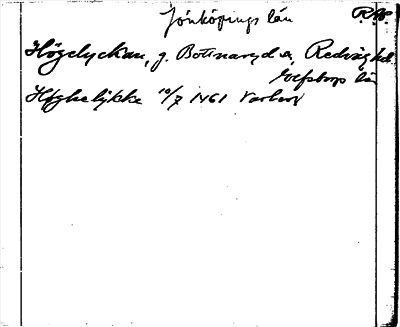 Jönköpings län
Högelyckan, g. Bottnaryd s., Redväg hd.
Elfsborgs län
Høghelykke 10/7 1461 Varberg